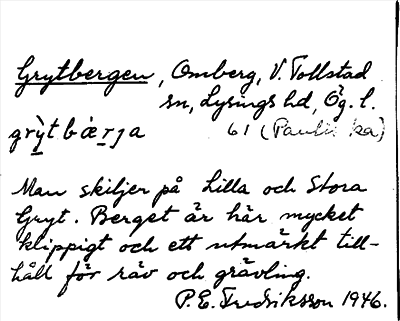 Grytbergen, Omberg, V. Tollstad
sn, Lysings hd, Ög. l.
grỳtbæ̀rja 61 (Paulis ka)
Man skiljer på Lilla och Stora
Gryt. Berget är här mycket
klippigt och ett utmärkt till-
håll för räv och grävling.
P. E. Fredriksson 1946.